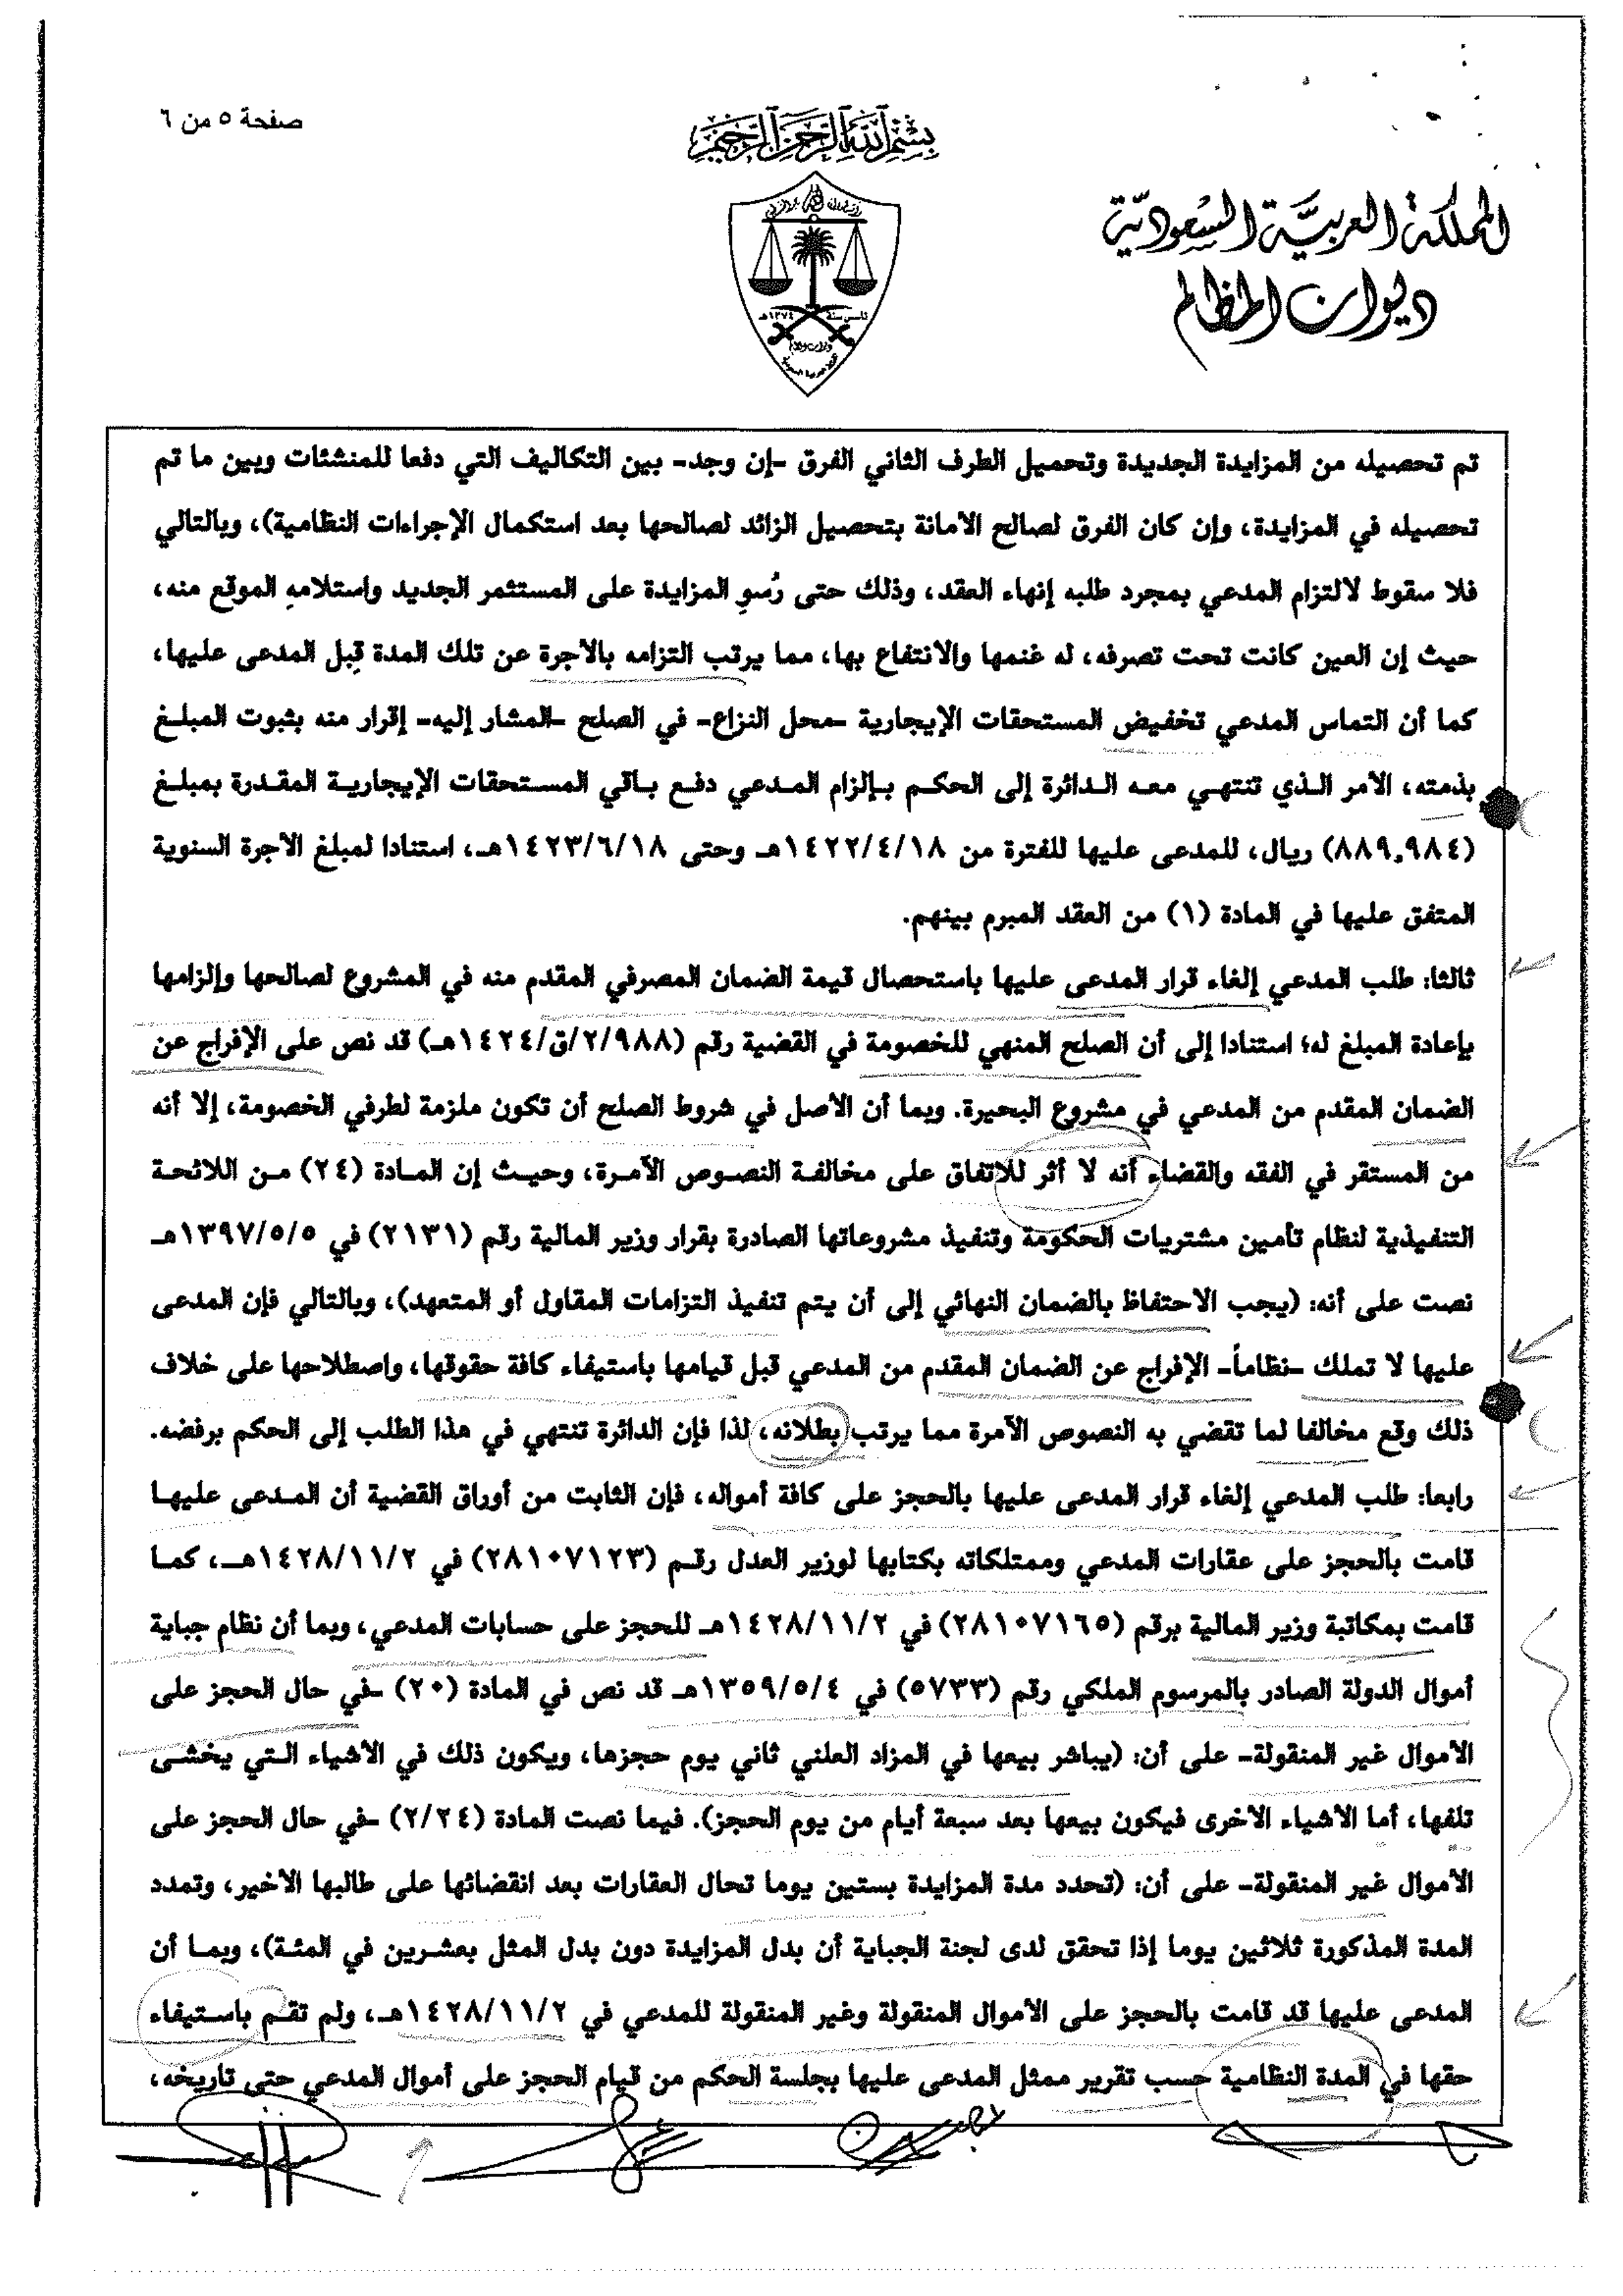 صفحة ٥ من ٦
بسم الله الرحمن الرحيم
المملكة العربية السعودية
ديوان المظالم
تأسس سنة ١٣٧٤هـ
تم تحصيله من المزايدة الجديدة وتحميل الطرف الثاني الفرق -إن وجد- بين التكاليف التي دفعا للمنشئات وبين ما تم
تحصيله في المزايدة، وإن كان الفرق لصالح الأمانة بتحصيل الزائد لصالحها بعد استكمال الإجراءات النظامية)، وبالتالي
فلا سقوط لالتزام المدعي بمجرد طلبه إنهاء العقد، وذلك حتى رُسوِ المزايدة على المستثمر الجديد واستلامهِ الموقع منه،
حيث إن العين كانت تحت تصرفه، له غنمها والانتفاع بها، مما يرتب التزامه بالأجرة عن تلك المدة قِبل المدعى عليها،
كما أن التماس المدعي تخفيض المستحقات الإيجارية -محل النزاع- في الصلح -المشار إليه- إقرار منه بثبوت المبلغ
بذمته، الأمر الذي تنتهي معه الدائرة إلى الحكم بإلزام المدعي دفع باقي المستحقات الإيجارية المقدرة بمبلغ
(٨٨٩,٩٨٤) ريال، للمدعى عليها للفترة من ١٤٢٢/٤/١٨هـ وحتى ١٤٢٣/٦/١٨هـ، استنادا لمبلغ الأجرة السنوية
المتفق عليها في المادة (١) من العقد المبرم بينهم.
ثالثا: طلب المدعي إلغاء قرار المدعى عليها باستحصال قيمة الضمان المصرفي المقدم منه في المشروع لصالحها وإلزامها
بإعادة المبلغ له؛ استنادا إلى أن الصلح المنهي للخصومة في القضية رقم (٢/٩٨٨/ق/١٤٢٤هـ) قد نص على الإفراج عن
الضمان المقدم من المدعي في مشروع البحيرة. وبما أن الأصل في شروط الصلح أن تكون ملزمة لطرفي الخصومة، إلا أنه
من المستقر في الفقه والقضاء أنه لا أثر للاتفاق على مخالفة النصوص الآمرة، وحيث إن المادة (٢٤) من اللائحة
التنفيذية لنظام تأمين مشتريات الحكومة وتنفيذ مشروعاتها الصادرة بقرار وزير المالية رقم (٢١٣١) في ١٣٩٧/٥/٥هـ
نصت على أنه: (يجب الاحتفاظ بالضمان النهائي إلى أن يتم تنفيذ التزامات المقاول أو المتعهد)، وبالتالي فإن المدعى
عليها لا تملك -نظاماً- الإفراج عن الضمان المقدم من المدعي قبل قيامها باستيفاء كافة حقوقها، واصطلاحها على خلاف
ذلك وقع مخالفا لما تقضي به النصوص الآمرة مما يرتب بطلانه، لذا فإن الدائرة تنتهي في هذا الطلب إلى الحكم برفضه.
رابعا: طلب المدعي إلغاء قرار المدعى عليها بالحجز على كافة أمواله، فإن الثابت من أوراق القضية أن المدعى عليها
قامت بالحجز على عقارات المدعي وممتلكاته بكتابها لوزير العدل رقم (٢٨١٠٧١٢٣) في ١٤٢٨/١١/٢هـ، كما
قامت بمكاتبة وزير المالية برقم (٢٨١٠٧١٦٥) في ١٤٢٨/١١/٢هـ للحجز على حسابات المدعي، وبما أن نظام جباية
أموال الدولة الصادر بالمرسوم الملكي رقم (٥٧٣٣) في ١٣٥٩/٥/٤هـ قد نص في المادة (٢٠) -في حال الحجز على
الأموال غير المنقولة- على أن: (يباشر بيعها في المزاد العلني ثاني يوم حجزها، ويكون ذلك في الأشياء التي يخشى
تلفها، أما الأشياء الأخرى فيكون بيعها بعد سبعة أيام من يوم الحجز). فيما نصت المادة (٢/٢٤) -في حال الحجز على
الأموال غير المنقولة- على أن: (تحدد مدة المزايدة بستين يوما تحال العقارات بعد انقضائها على طالبها الأخير، وتمدد
المدة المذكورة ثلاثين يوما إذا تحقق لدى لجنة الجباية أن بدل المزايدة دون بدل المثل بعشرين في المئة)، وبما أن
المدعى عليها قد قامت بالحجز على الأموال المنقولة وغير المنقولة للمدعي في ١٤٢٨/١١/٢هـ، ولم تقم باستيفاء
حقها في المدة النظامية حسب تقرير ممثل المدعى عليها بجلسة الحكم من قيام الحجز على أموال المدعي حتى تاريخه،